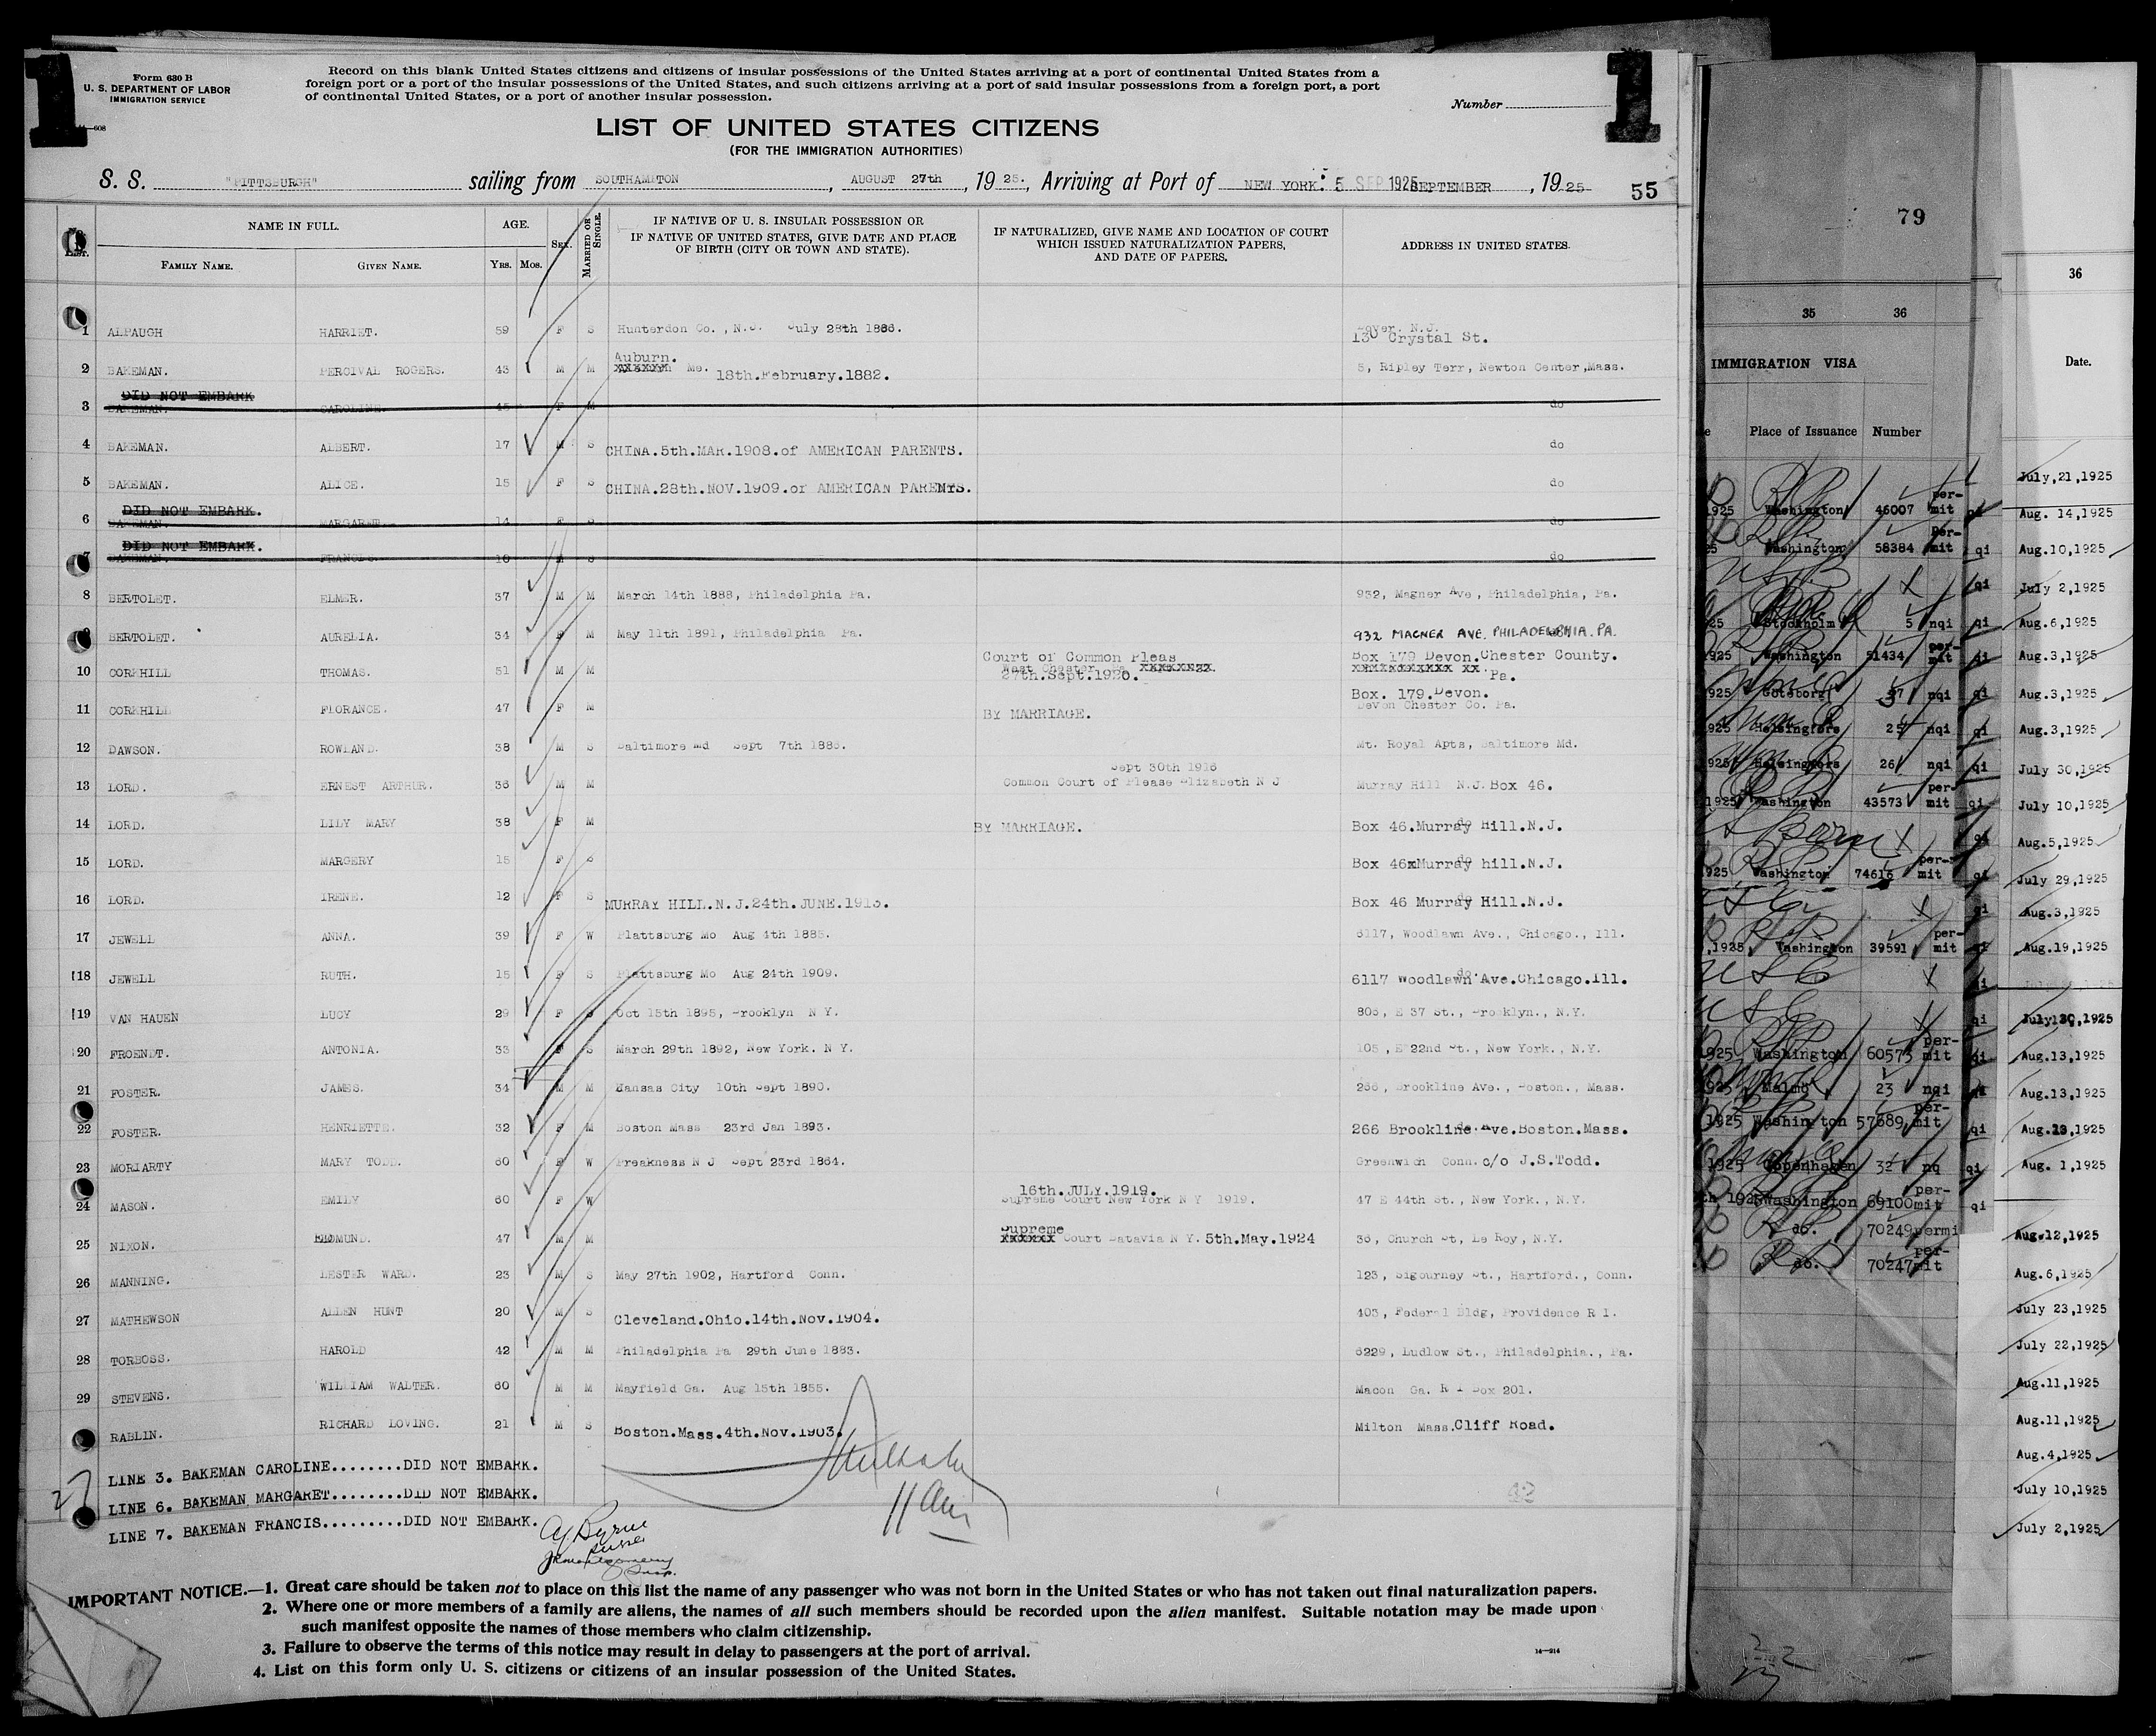 1
Form 630 B
U. S. DEPARTMENT OF LABOR
IMMIGRATION SERVICE
Record on this blank United States citizens and citizens of insular possessions of the United States arriving at a port of continental United States from a
foreign port or a port of the insular possessions of the United States, and such citizens arriving at a port of said insular possessions from a foreign port, a port
of continental United States, or a port of another insular possession.
Number
1
LIST OF UNITED STATES CITIZENS
(FOR THE IMMIGRATION AUTHORITIES)
S. S. "PITTSBURGH" sailing from SOUTHAMPTON, AUGUST 27th, 1925., Arriving at Port of NEW YORK: 5 SEP 1925 SEPTEMBER, 1925
55
NAME IN FULL. AGE. SEX. MARRIED OR SINGLE. IF NATIVE OF U. S. INSULAR POSSESSION OR
IF NATIVE OF UNITED STATES, GIVE DATE AND PLACE
OF BIRTH (CITY OR TOWN AND STATE).
IF NATURALIZED, GIVE NAME AND LOCATION OF COURT
WHICH ISSUED NATURALIZATION PAPERS,
AND DATE OF PAPERS.
ADDRESS IN UNITED STATES.
FAMILY NAME. GIVEN NAME. YRS. MOS.
1 ALPAUGH HARRIET. 59 F S Hunterdon Co., N.J. July 28th 1866. Dover. N.J. 130 Crystal St.
2 BAKEMAN. PERCIVAL ROGERS. 43 M M Auburn. xxxxxx Me. 18th.February.1882. 5, Ripley Terr, Newton Center, Mass.
DID NOT EMBARK
3 BAKEMAN. CAROLINE. 45 F M do
4 BAKEMAN. ALBERT. 17 M S CHINA.5th.MAR.1908.of AMERICAN PARENTS. do
5 BAKEMAN. ALICE. 15 F S CHINA.28th.NOV.1909.of AMERICAN PARENTS. do
DID NOT EMBARK.
6 BAKEMAN. MARGARET. 14 F S do
DID NOT EMBARK.
7 BAKEMAN. FRANCIS. 10 M S do
8 BERTOLET. ELMER. 37 M M March 14th 1888, Philadelphia Pa. 932, Magner Ave, Philadelphia, Pa.
9 BERTOLET. AURELIA. 34 F M May 11th 1891, Philadelphia Pa. 932 MAGNER AVE. PHILADELPHIA. PA.
10 CORKHILL THOMAS. 51 M M Court of Common Pleas West Chester Pa 27th.Sept.1920. Box 179 Devon.Chester County. Pa.
11 CORKHILL FLORANCE. 47 F M BY MARRIAGE. Box. 179.Devon. Devon Chester Co. Pa.
12 DAWSON. ROWLAND. 38 M S Baltimore Md Sept 7th 1886. Mt. Royal Apts, Baltimore Md.
13 LORD. ERNEST ARTHUR. 36 M M Sept 30th 1916 Common Court of Please Elizabeth N J Murray Hill N.J. Box 46.
14 LORD. LILY MARY 38 F M BY MARRIAGE. Box 46.Murray Hill.N.J.
15 LORD. MARGERY 15 F S Box 46xMurray hill.N.J.
16 LORD. IRENE. 12 F S MURRAY HILL.N.J.24th.JUNE.1913. Box 46 Murray Hill.N.J.
17 JEWELL ANNA. 39 F W Plattsburg Mo Aug 4th 1885. 6117, Woodlawn Ave., Chicago., Ill.
18 JEWELL RUTH. 15 F S Plattsburg Mo Aug 24th 1909. 6117 Woodlawn Ave.Chicago.Ill.
19 VAN HAUEN LUCY 29 F S Oct 15th 1895, Brooklyn N Y. 806, E 37 St., Brooklyn., N.Y.
20 FROENDT. ANTONIA. 33 F S March 29th 1892, New York. N Y. 105, E 22nd St., New York., N.Y.
21 FOSTER. JAMES. 34 M M Kansas City 10th Sept 1890. 266, Brookline Ave., Boston., Mass.
22 FOSTER. HENRIETTE. 32 F M Boston Mass 23rd Jan 1893. 266 Brookline Ave.Boston.Mass.
23 MORIARTY MARY TODD. 60 F W Preakness N J Sept 23rd 1864. Greenwich Conn. c/o J.S.Todd.
24 MASON. EMILY 60 F W 16th.JULY.1919. Supreme Court New York N Y 1919. 47 E 44th St., New York., N.Y.
25 NIXON. EDMUND. 47 M M Supreme xxxxxx Court Batavia N Y. 5th.May.1924 36, Church St, Le Roy, N.Y.
26 MANNING. LESTER WARD. 23 M S May 27th 1902, Hartford Conn. 123, Sigourney St., Hartford., Conn.
27 MATHEWSON ALLEN HUNT 20 M S Cleveland.Ohio.14th.Nov.1904. 403, Federal Bldg, Providence R I.
28 TORBOSS. HAROLD 42 M M Philadelphia Pa 29th June 1883. 6229, Ludlow St., Philadelphia., Pa.
29 STEVENS. WILLIAM WALTER. 60 M M Mayfield Ga. Aug 15th 1855. Macon Ga. R 1 Box 201.
RABLIN. RICHARD LOVING. 21 M S Boston.Mass.4th.Nov.1903. Milton Mass.Cliff Road.
27
42
LINE 3. BAKEMAN CAROLINE........DID NOT EMBARK.
LINE 6. BAKEMAN MARGARET........DID NOT EMBARK.
LINE 7. BAKEMAN FRANCIS.........DID NOT EMBARK.
IMPORTANT NOTICE.—1. Great care should be taken not to place on this list the name of any passenger who was not born in the United States or who has not taken out final naturalization papers.
2. Where one or more members of a family are aliens, the names of all such members should be recorded upon the alien manifest. Suitable notation may be made upon
such manifest opposite the names of those members who claim citizenship.
3. Failure to observe the terms of this notice may result in delay to passengers at the port of arrival.
4. List on this form only U. S. citizens or citizens of an insular possession of the United States.
14—914
79
35 36
IMMIGRATION VISA
Place of Issuance Number
1925 Washington 46007 permit qi
25 Washington 58384 permit qi
qi
25 Stockholm 5 nqi qi
1925 Washington 51434 permit qi
1925 Goteborg 37 nqi qi
1925 Helsingfors 25 nqi qi
1925 Helsingfors 26 nqi qi
1925 Washington 43573 permit qi
qi
1925 Washington 74616 permit qi
qi
1925, Washington 39591 permit qi
USC qi
USC qi
1925 Washington 60573 permit qi
1925 Malmo 23 nqi qi
1925 Washington 57689 permit qi
1925 Copenhagen 32 nq qi
1925 Washington 69100 permit qi
do. 70249 permi
do. 70247 permit
36
Date.
July,21,1925
Aug. 14,1925
Aug.10,1925
July 2,1925
Aug.6,1925
Aug.3,1925
Aug.3,1925
Aug.3,1925
July 30,1925
July 10,1925
Aug.5,1925
July 29,1925
Aug.3,1925
Aug.19,1925
July 30,1925
Aug.13,1925
Aug.13,1925
Aug.13,1925
Aug. 1,1925
Aug.12,1925
Aug.6,1925
July 23,1925
July 22,1925
Aug.11,1925
Aug.11,1925
Aug.4,1925
July 10,1925
July 2,1925